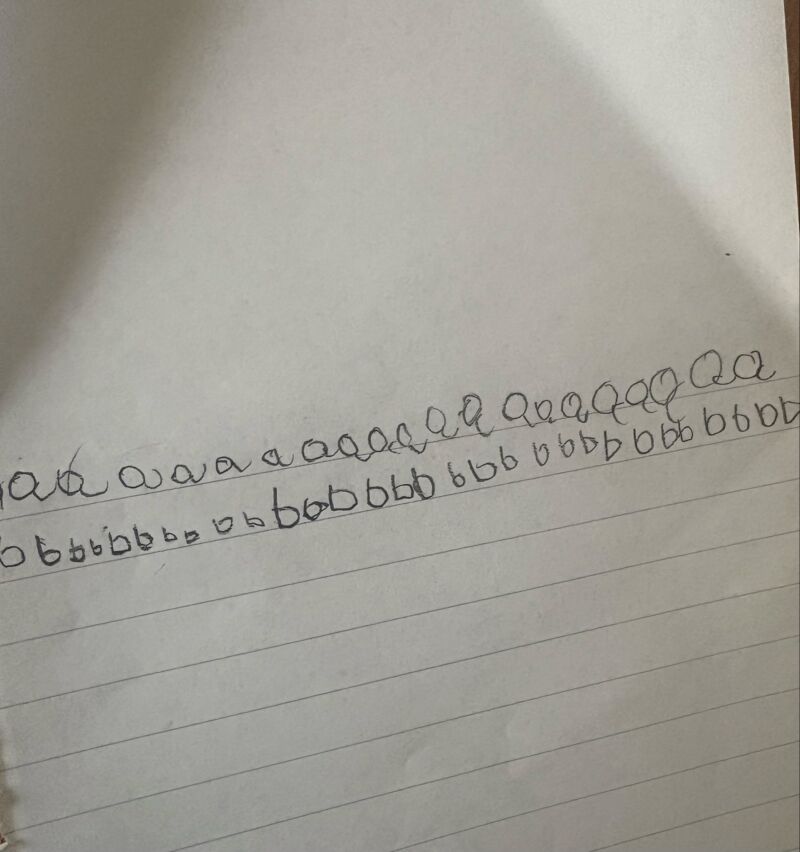 a a a a a a a a a a a a a a a a a a a a a a
b b b b b b b b b b b b b b b b b b b b b b b b b b b b b b b b b